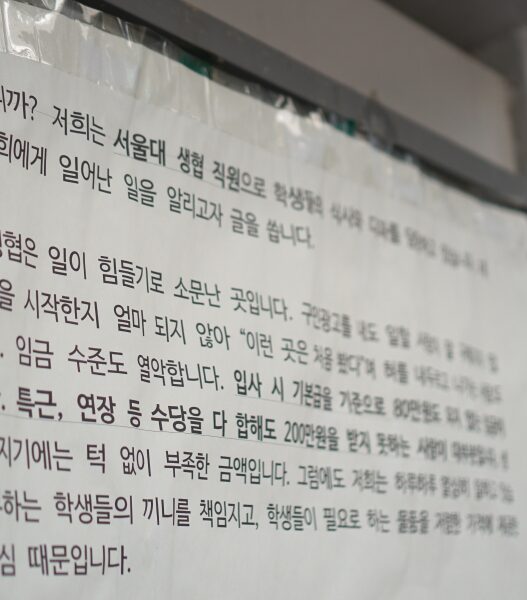 니까? 저희는 서울대 생협 직원으로 학생들의 식사와
희에게 일어난 일을 알리고자 글을 씁니다.
생협은 일이 힘들기로 소문난 곳입니다. 구인광고를 내도 일할 사람이
을 시작한지 얼마 되지 않아 “이런 곳은 처음 봤다”며 혀를 내두르고
. 임금 수준도 열악합니다. 입사 시 기본급을 기준으로 80만원도 되지
. 특근, 연장 등 수당을 다 합해도 200만원을 받지 못하는 사람이 대부분입니다.
지기에는 턱 없이 부족한 금액입니다. 그럼에도 저희는 하루하루 열심히 일하고
하는 학생들의 끼니를 책임지고, 학생들이 필요로 하는 물품을 저렴한 가격에
심 때문입니다.